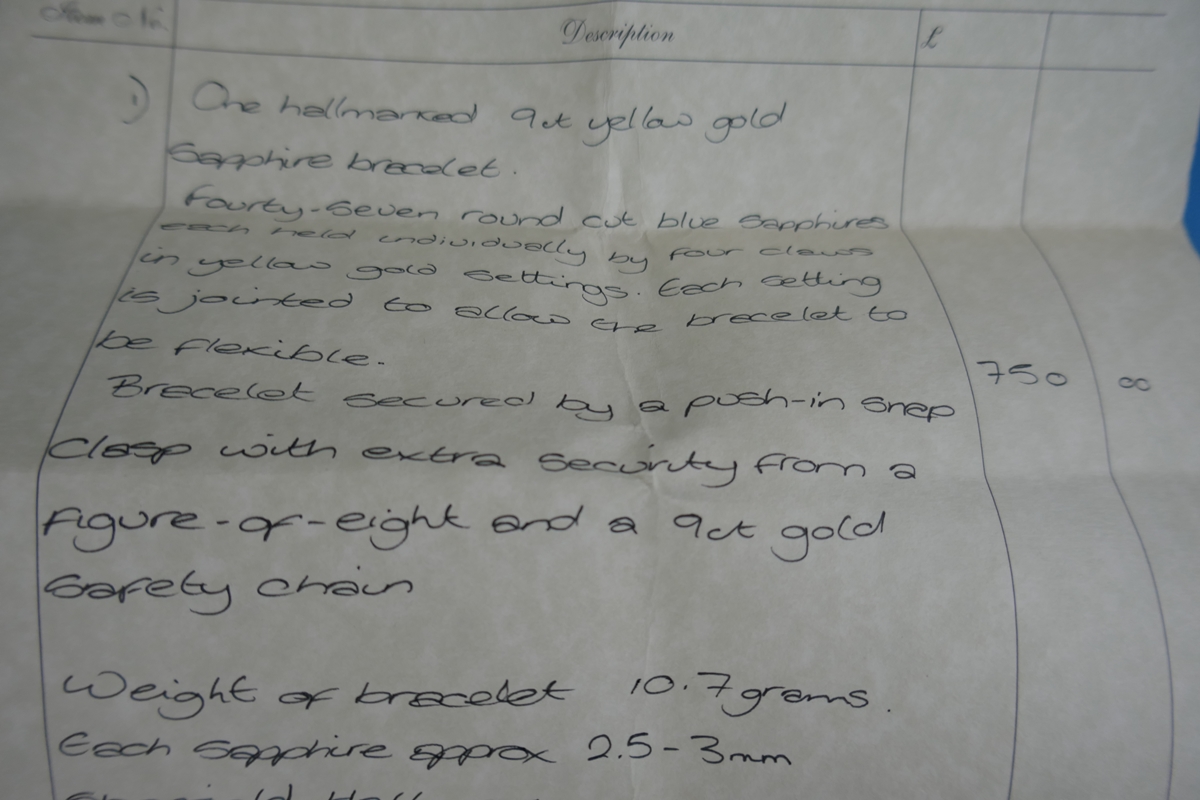 Item No. Description £
1) One hallmarked 9ct yellow gold
Sapphire bracelet.
Fourty-Seven round cut blue Sapphires
each held individually by four claws
in yellow gold settings. Each setting
is jointed to allow the bracelet to
be flexible.
750 00
Bracelet secured by a push-in snap
Clasp with extra security from a
Figure-of-eight and a 9ct gold
Safety chain
Weight of bracelet 10.7grams.
Each Sapphire approx 2.5-3mm